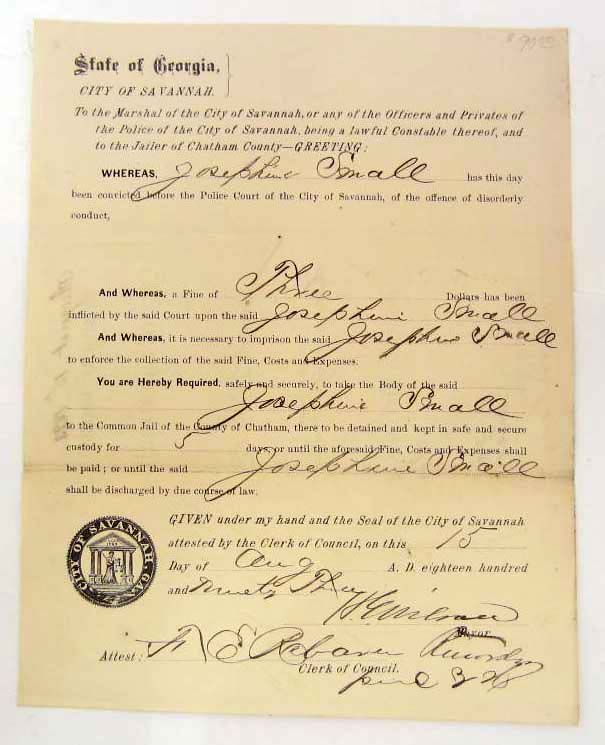 State of Georgia,
CITY OF SAVANNAH.
To the Marshal of the City of Savannah, or any of the Officers and Privates of
the Police of the City of Savannah, being a lawful Constable thereof, and
to the Jailer of Chatham County—GREETING:
WHEREAS, Josephine Small has this day
been convicted before the Police Court of the City of Savannah, of the offence of disorderly
conduct,
And Whereas, a Fine of Three Dollars has been
inflicted by the said Court upon the said Josephine Small
And Whereas, it is necessary to imprison the said Josephine Small
to enforce the collection of the said Fine, Costs and Expenses.
You are Hereby Required, safely and securely, to take the Body of the said
Josephine Small
to the Common Jail of the County of Chatham, there to be detained and kept in safe and secure
custody for 5 days, or until the aforesaid Fine, Costs and Expenses shall
be paid; or until the said Josephine Small
shall be discharged by due course of law.
GIVEN under my hand and the Seal of the City of Savannah
attested by the Clerk of Council, on this 15
Day of Aug A. D. eighteen hundred
and Ninety Three
CITY OF SAVANNAH, GA.
Mayor
Attest:
Clerk of Council.